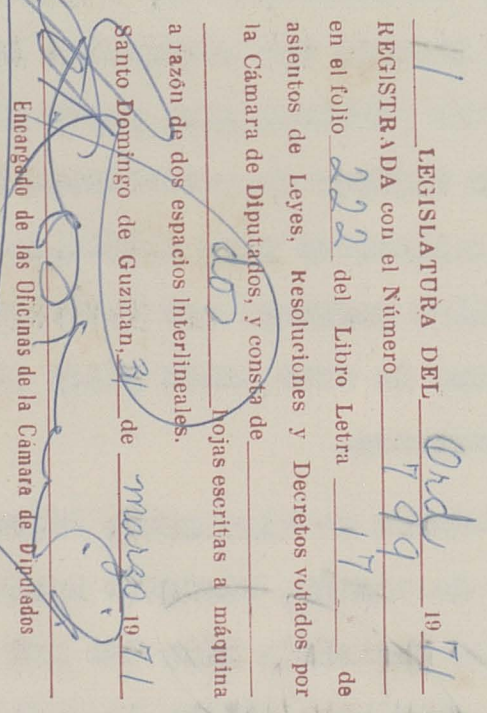 11 LEGISLATURA DEL Ord 1971
REGISTRADA con el Número 799
en el folio 222 del Libro Letra 17 de
asientos de Leyes, Resoluciones y Decretos votados por
la Cámara de Diputados, y consta de
dos hojas escritas a máquina
a razón de dos espacios interlineales.
Santo Domingo de Guzman, 31 de marzo 1971
Encargado de las Oficinas de la Cámara de Diputados